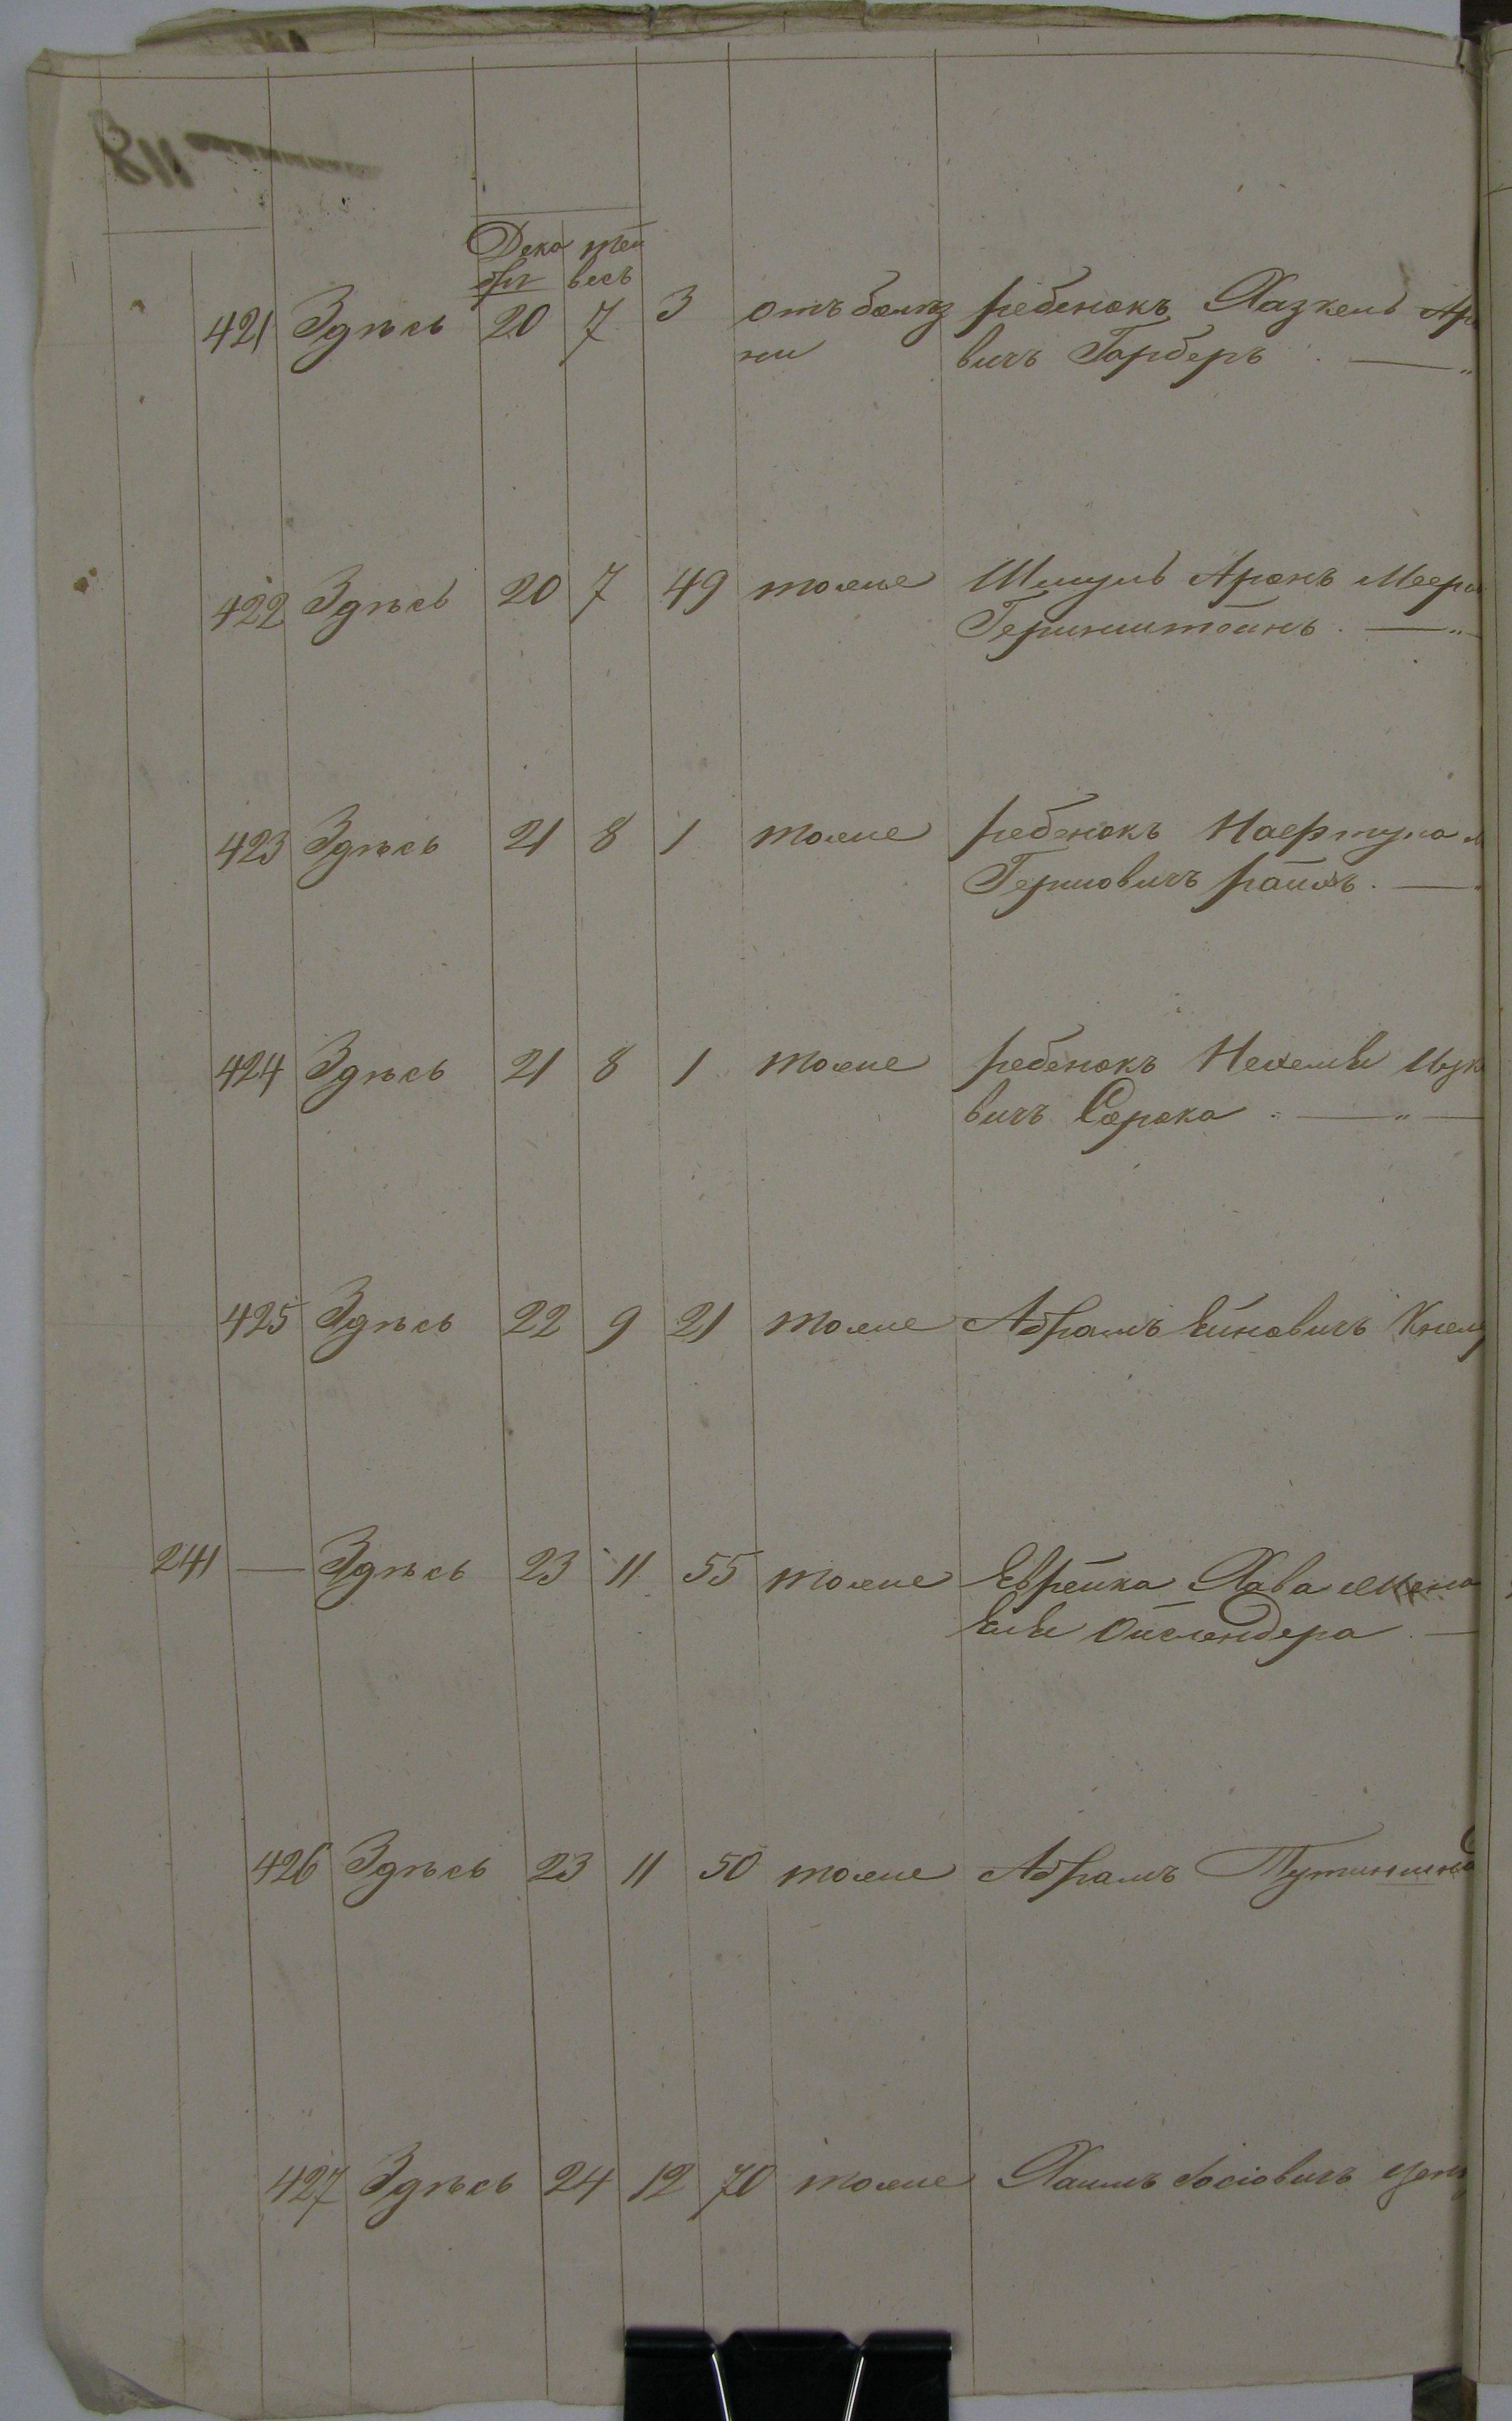 118
Дека тей
бря весъ
421 Здѣсь 20 7 3 отъ болѣз ребенокъ Хазкель
ни вичъ Гарберъ
422 Здѣсь 20 7 49 тоже Шмуль Аронъ
Геринштейнъ
423 Здѣсь 21 8 1 тоже ребенокъ Нафтула
Гершовичъ
424 Здѣсь 21 8 1 тоже ребенокъ Нехемья
вичъ Сорока
425 Здѣсь 22 9 21 тоже Абрамъ Ейновичъ
241 — Здѣсь 23 11 55 тоже Еврейка Хава
Ойслендера
426 Здѣсь 23 11 50 тоже Абрамъ
427 Здѣсь 24 12 70 тоже Хаимъ Іосіовичъ